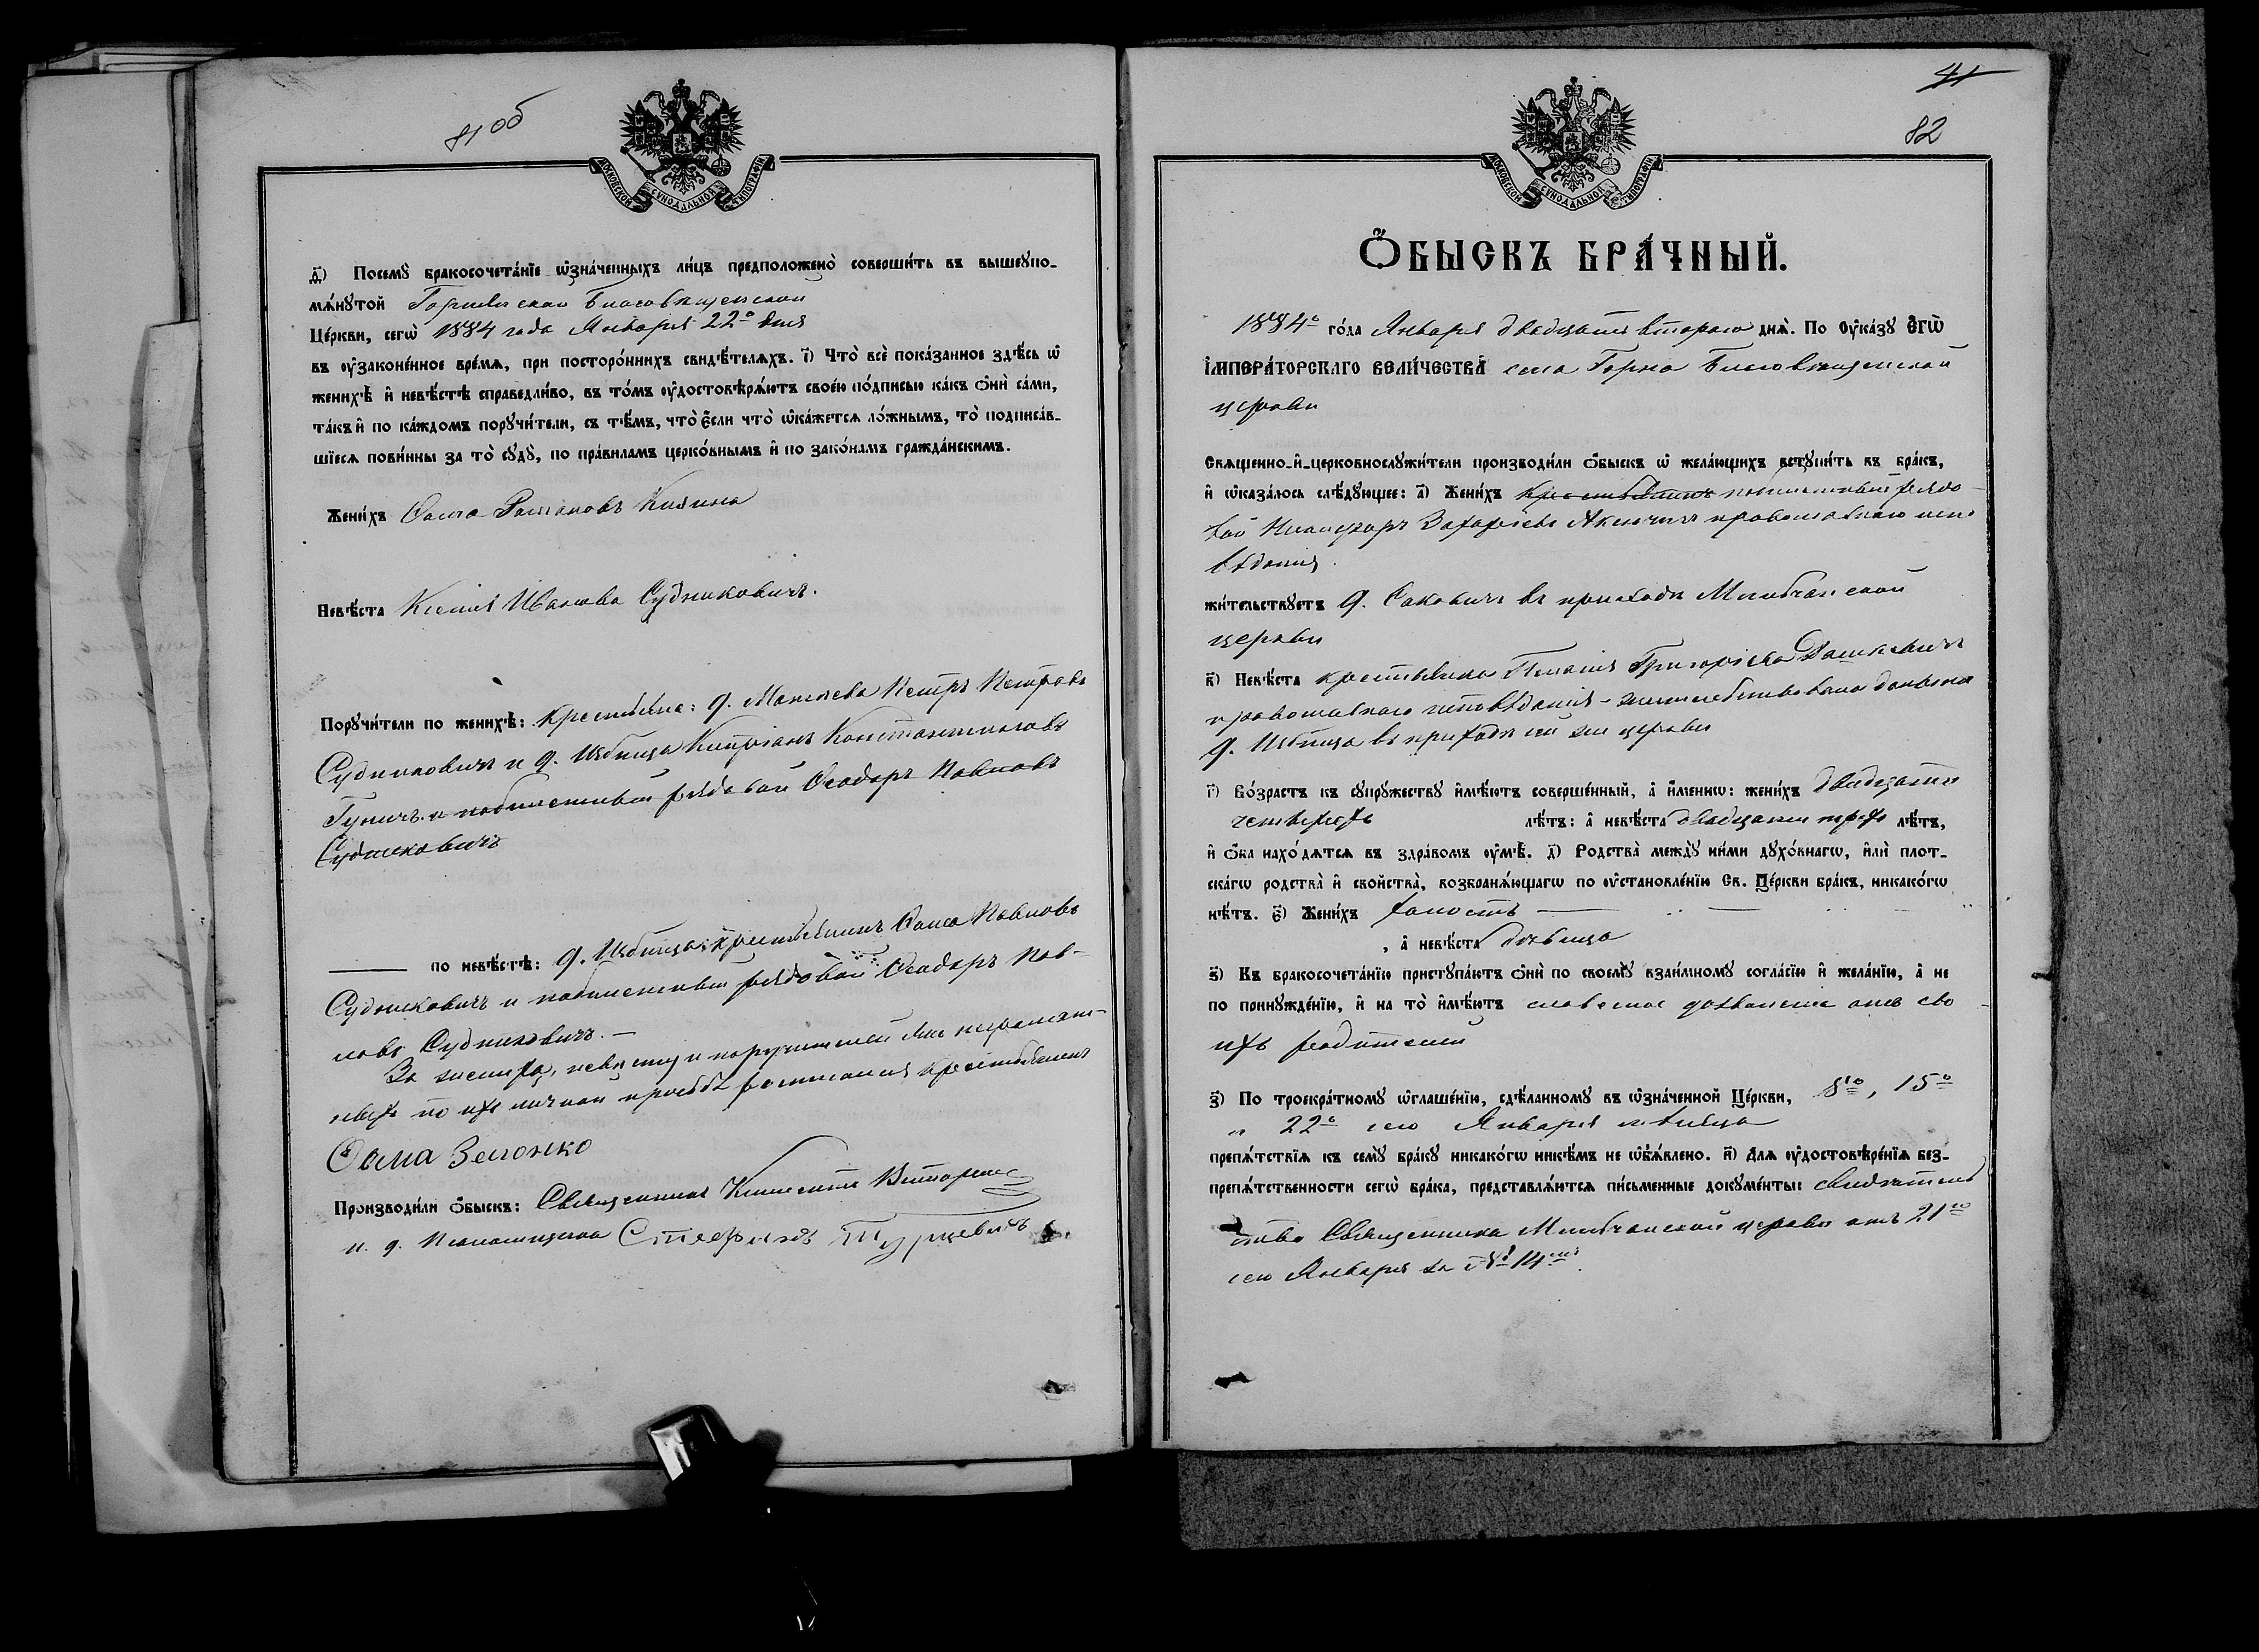 81об
МОСКОВСКОЙ СѴНОДАЛЬНОЙ ТИПОГРАФІИ
Посемꙋ̀ бракосочета́нїе ѡ҆зна́ченныхъ ли́цъ предположено̀ соверши́ть въ вышеꙋпо-
мѧ́нꙋтой Горнянской Благовѣщенской
Це́ркви, сегѡ̀ 1884 года Января 22го дня
въ ᲂу҆законе́нное вре́мѧ, при посторо́ннихъ свидѣ́телѧхъ. і҃) Что̀ всѐ пока́занное здѣ́сь ѡ҆
женихѣ̀ и҆ невѣ́стѣ справедли́во, въ то́мъ ᲂу҆достовѣрѧ́ютъ свое́ю по́дписью ка́къ ѻ҆нѝ са́ми,
та́къ и҆ по ка́ждомъ порꙋчи́тели, съ тѣ́мъ, что̀ є҆́сли что̀ ѡ҆ка́жетсѧ ло́жнымъ, то̀ подписа́в-
шїесѧ пови́нны за то̀ сꙋдꙋ̀, по пра́виламъ церко́внымъ и҆ по зако́намъ гражда́нскимъ.
Жени́хъ Ѳома Романовъ
Невѣ́ста Ксенія Иванова Судниковичъ.
Порꙋчи́тели по женихѣ̀: Крестьяне: д. Петръ Петровъ
Судниковичъ и д. Избища Кипріанъ Константиновъ
Гуничъ и рядовой Ѳеодоръ Павловъ
Судниковичъ
по невѣ́стѣ: д. Избища: крестьянинъ Ѳома Павловъ
Судниковичъ и рядовой Ѳеодоръ Пав-
ловъ Судниковичъ. —
За жениха, невѣсту и поручителей неграмот-
ныхъ по ихъ личной просьбѣ росписался крестьянинъ
Ѳома Зелонко
Производи́ли ѻ҆́быскъ: Священникъ Климентъ
и. д. Псаломщика Стефанъ Турцевичъ
41
82
МОСКОВСКОЙ СѴНОДАЛЬНОЙ ТИПОГРАФІИ
Ѻ҆БЫСКЪ БРА́ЧНЫЙ.
1884го го́да Января двадцать втораго днѧ̀. По ᲂу҆ка́зꙋ є҆гѡ̀
і҆мпера́торскаго вели́чества села Горна Благовѣщенской
церкви
свѧще́нно-и҆-церковнослꙋжи́тели производи́ли ѻ҆́быскъ ѡ҆ жела́ющихъ встꙋпи́ть въ бра́къ,
и҆ ѡ҆каза́лось слѣ́дꙋющее: а҃) Жени́хъ крестьянинъ рядо-
вой Захаріевъ православнаго испо-
вѣданія.
жи́тельствꙋетъ д. Саковичъ въ приходѣ Милчанской
церкви
в҃) Невѣ́ста крестьянка Григоріева Дашкевичъ
православнаго исповѣданія - жительствовала доселѣ
д. Избища въ приходѣ сей же церкви
г҃) Во́зрастъ къ сꙋпрꙋ́жествꙋ и҆мѣ́ютъ соверше́нный, а҆ и҆́менно: жени́хъ двадцати
четырехъ лѣ́тъ: а҆ невѣ́ста двадцати трехъ лѣ́тъ,
и҆ ѻ҆́ба нахо́дѧтсѧ въ здра́вомъ ᲂу҆мѣ̀. д҃) Родства̀ междꙋ̀ ни́ми дꙋхо́внагѡ, и҆лѝ плот-
ска́гѡ родства̀ и҆ сво́йства, возбранѧ́ющагѡ по ᲂу҆становле́нїю Св. Це́ркви бра́къ, никако́гѡ
нѣ́тъ. є҃) Жени́хъ холостъ —
, а҆ невѣ́ста дѣвица
ѕ҃) Къ бракосочета́нїю пристꙋпа́ютъ ѻ҆нѝ по своемꙋ̀ взаи́мномꙋ согла́сїю и҆ жела́нїю, а҆ не
по принꙋжде́нїю, и҆ на то̀ и҆мѣ́ютъ словесное дозволеніе отъ сво-
ихъ родителей
з҃) По троекра́тномꙋ ѡ҆глаше́нїю, сдѣ́ланномꙋ въ ѡ҆зна́ченной Це́ркви, 8го, 15го
и 22го сего Января мѣсяца
препѧ́тствїѧ къ семꙋ̀ бра́кꙋ никако́гѡ никѣ́мъ не ѡ҆б̾ѧ́влено. и҃) Для ᲂу҆достовѣре́нїѧ без-
препѧ́тственности сегѡ̀ бра́ка, представлѧ́ютсѧ пи́сьменные докꙋме́нты: свидѣтель-
ство Священника Милчанской церкви отъ 21го
сего Января за № 14мъ.